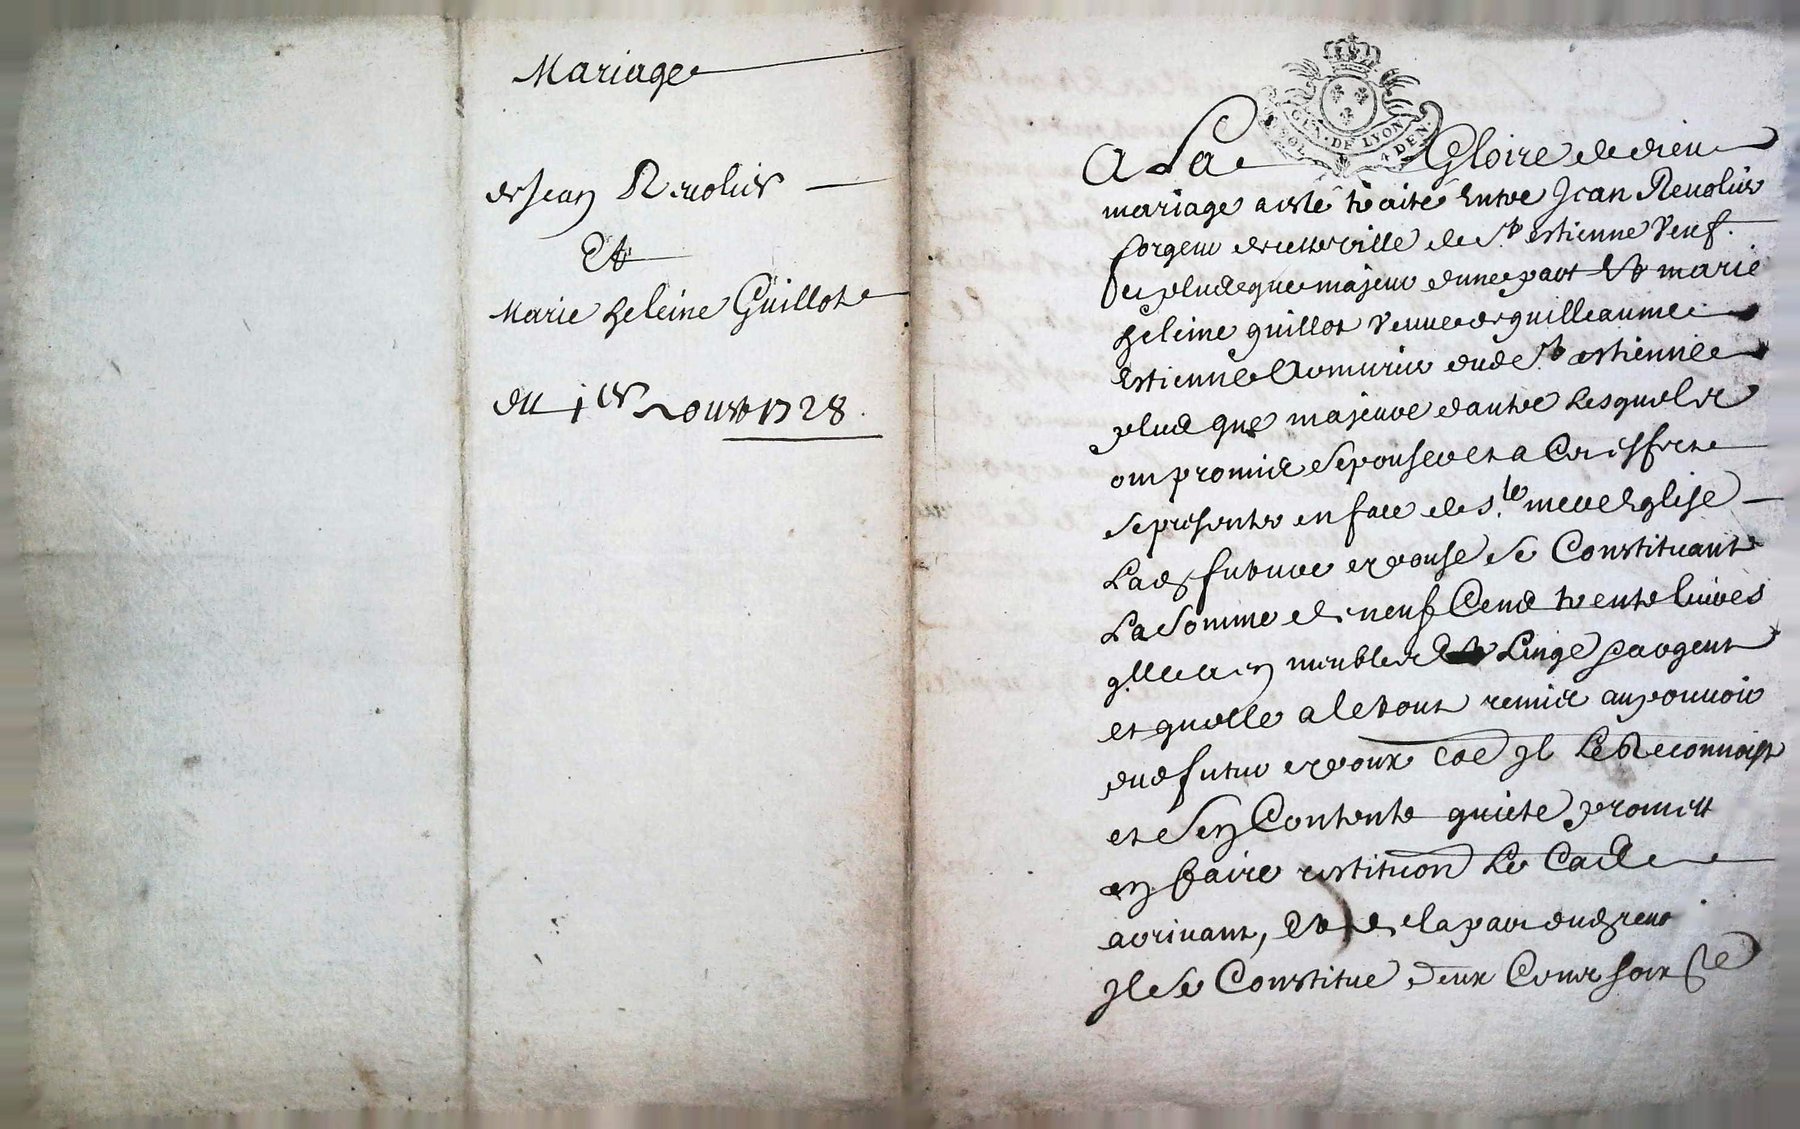 Mariage
de Jean Revolier
Et
Marie heleine Guillot
du 1er aout 1728.
GEN. DE LYON
SOL. 4 DEN.
A La Gloire de dieu
mariage a este traité Entre Jean Revolier
forgeur de cette ville de St estienne Veuf
et plus que majeur dune part Et marie
heleine guillot Veuve de guilleaume
Estienne dud St estienne
plus que majeure dautre Lesquels
ont promis sepouser et a Cet effect
se presenter en face de ste mere Eglise
Lad future epouse se Constituant
La Somme de neuf Cens trente livres
en meubles Linge argent
et quelle a le tout remis au pouvoir
dud futur epoux Il Le Reconnoist
et sen Contente quitte promet
en faire restituon Le Cas
arrivant, Et de la part dud
Il se Constitue deux Cens soixte